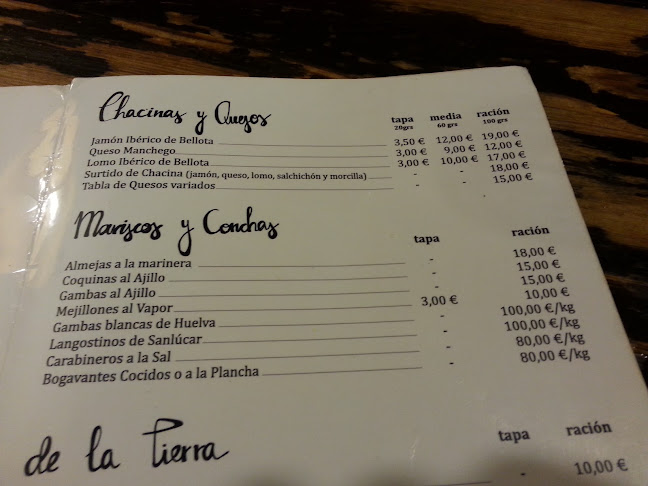 Chacinas y Quesos
tapa media ración
20grs 60 grs 100 grs
Jamón Ibérico de Bellota 3,50 € 12,00 € 19,00 €
Queso Manchego 3,00 € 9,00 € 12,00 €
Lomo Ibérico de Bellota 3,00 € 10,00 € 17,00 €
Surtido de Chacina (jamón, queso, lomo, salchichón y morcilla) - - 18,00 €
Tabla de Quesos variados - - 15,00 €
Mariscos y Conchas
tapa ración
Almejas a la marinera - 18,00 €
Coquinas al Ajillo - 15,00 €
Gambas al Ajillo - 15,00 €
Mejillones al Vapor 3,00 € 10,00 €
Gambas blancas de Huelva - 100,00 €/kg
Langostinos de Sanlúcar - 100,00 €/kg
Carabineros a la Sal - 80,00 €/kg
Bogavantes Cocidos o a la Plancha - 80,00 €/kg
de la Tierra
tapa ración
- 10,00 €